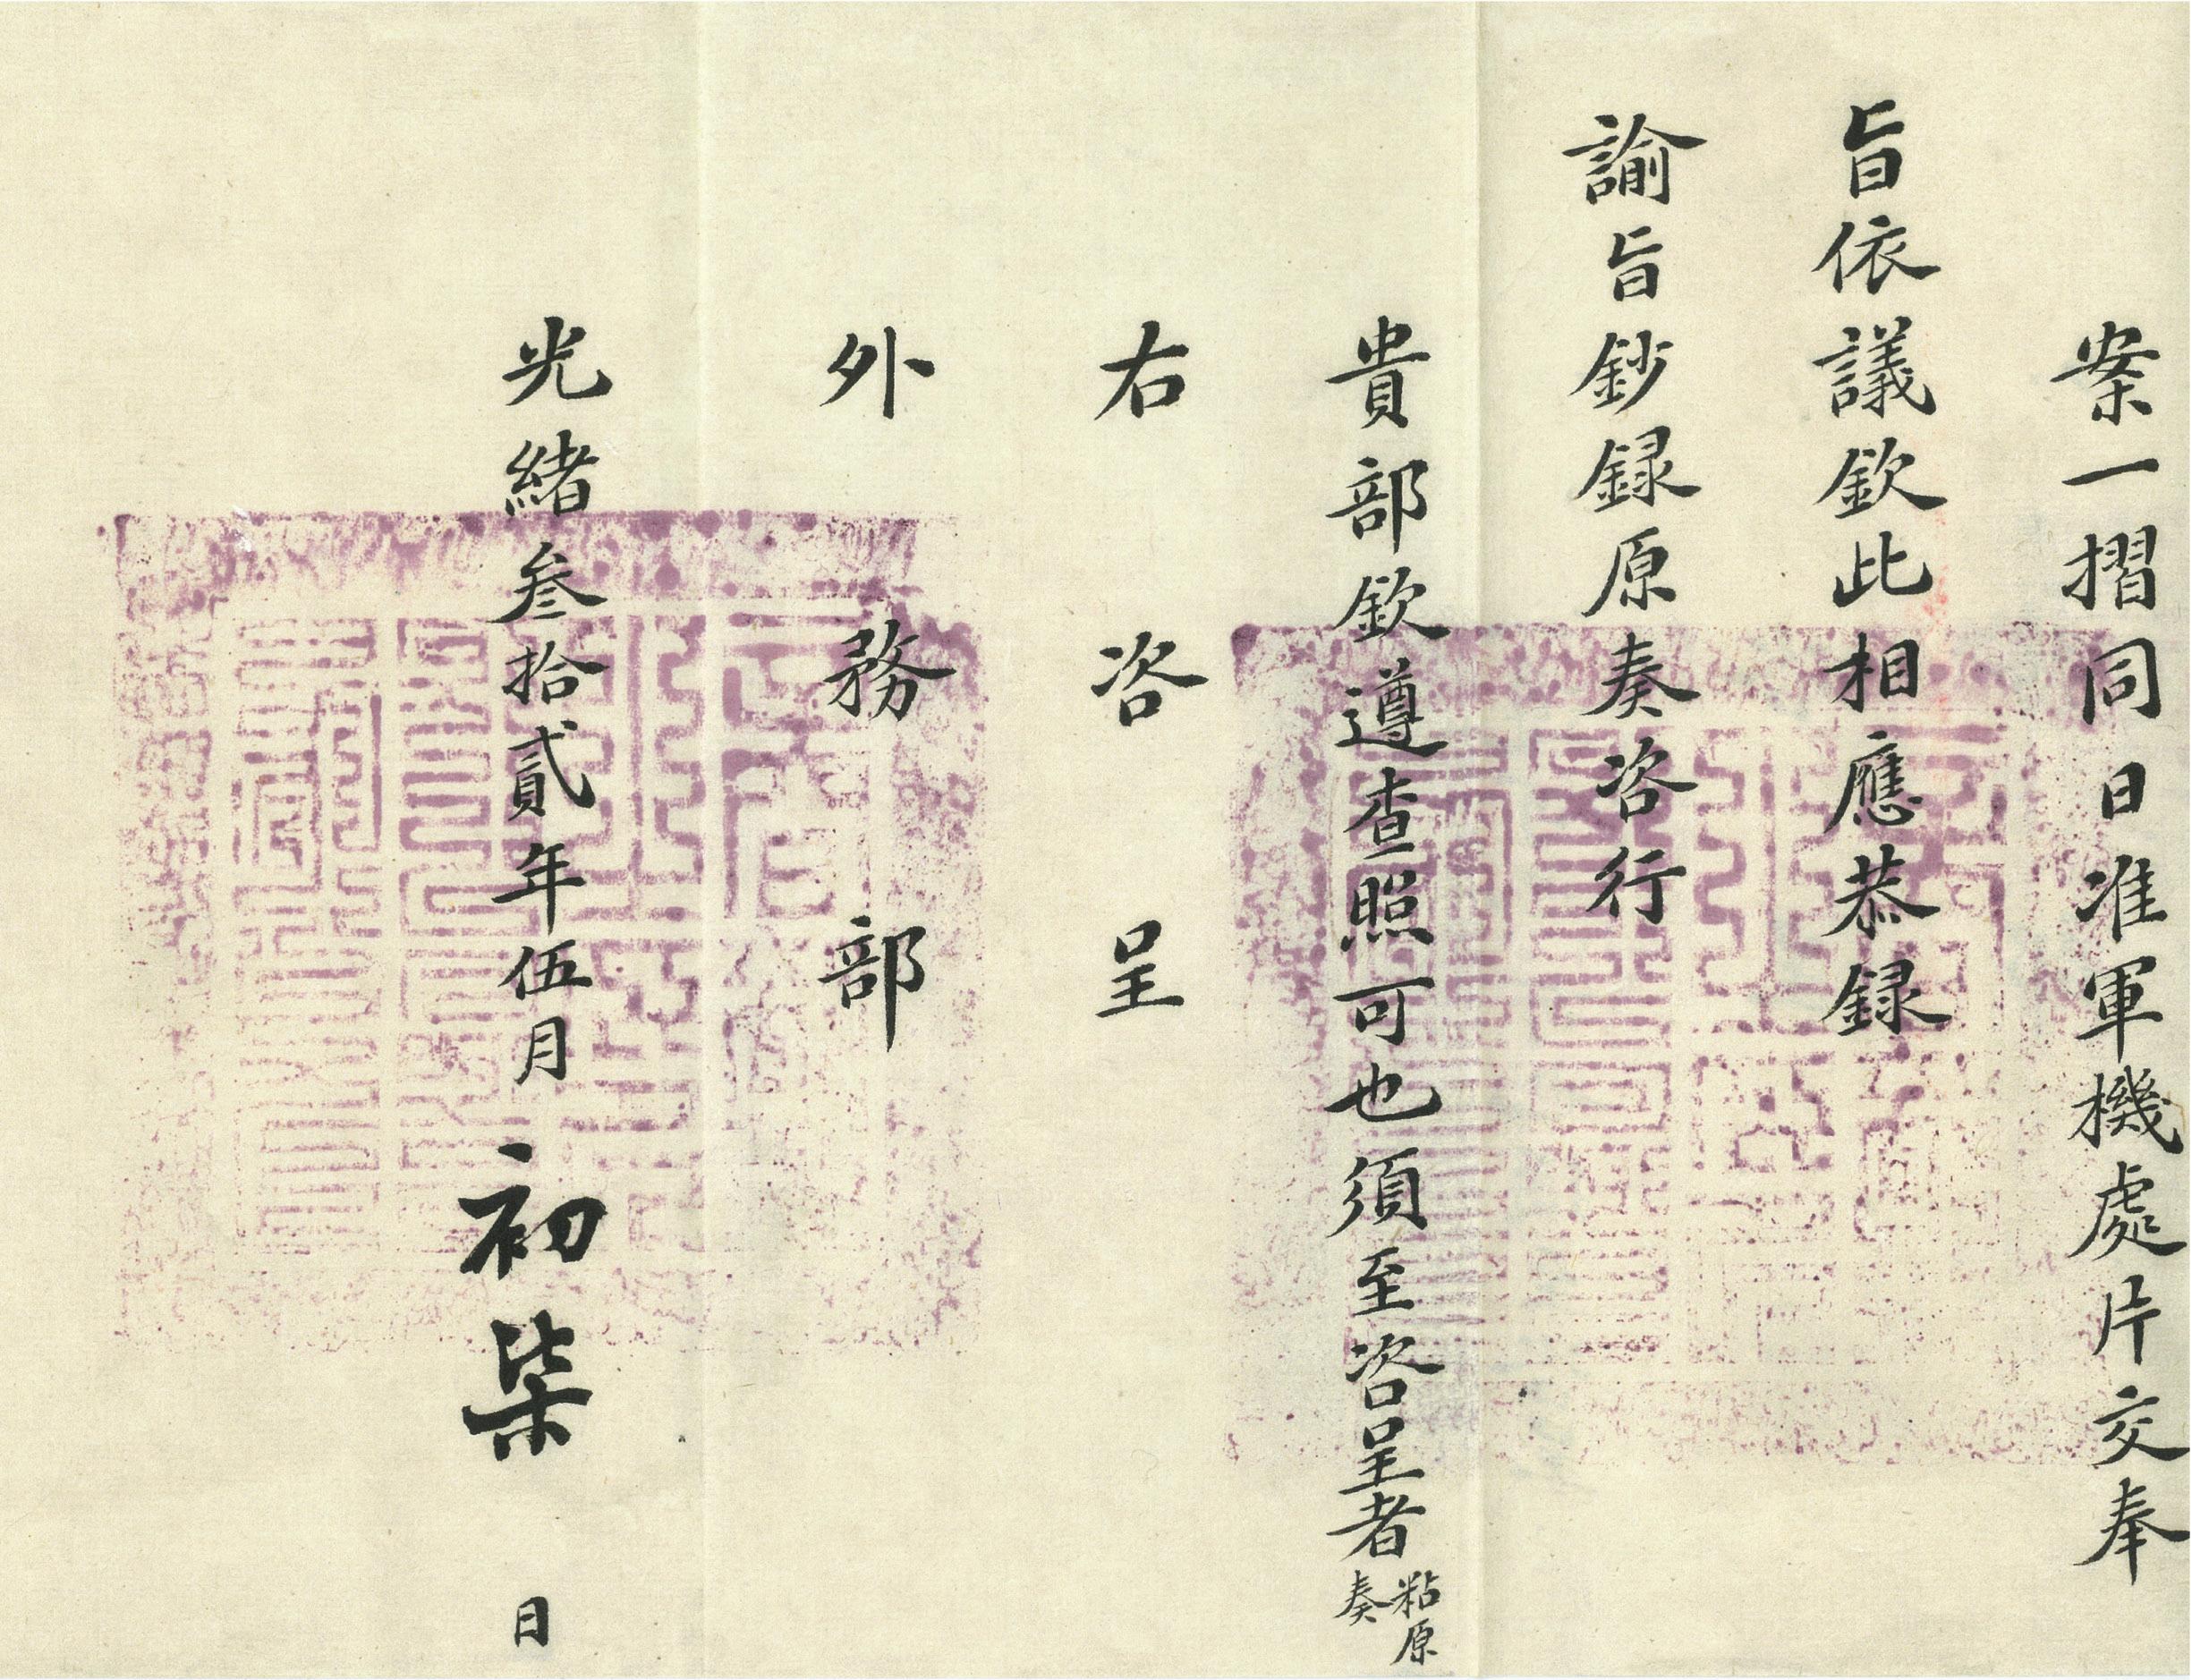 案一摺同日准軍機處片交奉
旨依議欽此相應恭録
諭旨鈔録原奏咨行
貴部欽遵查照可也須至咨呈者
粘原
奏
右咨呈
外務部
光緒叁拾貳年伍月初柒日